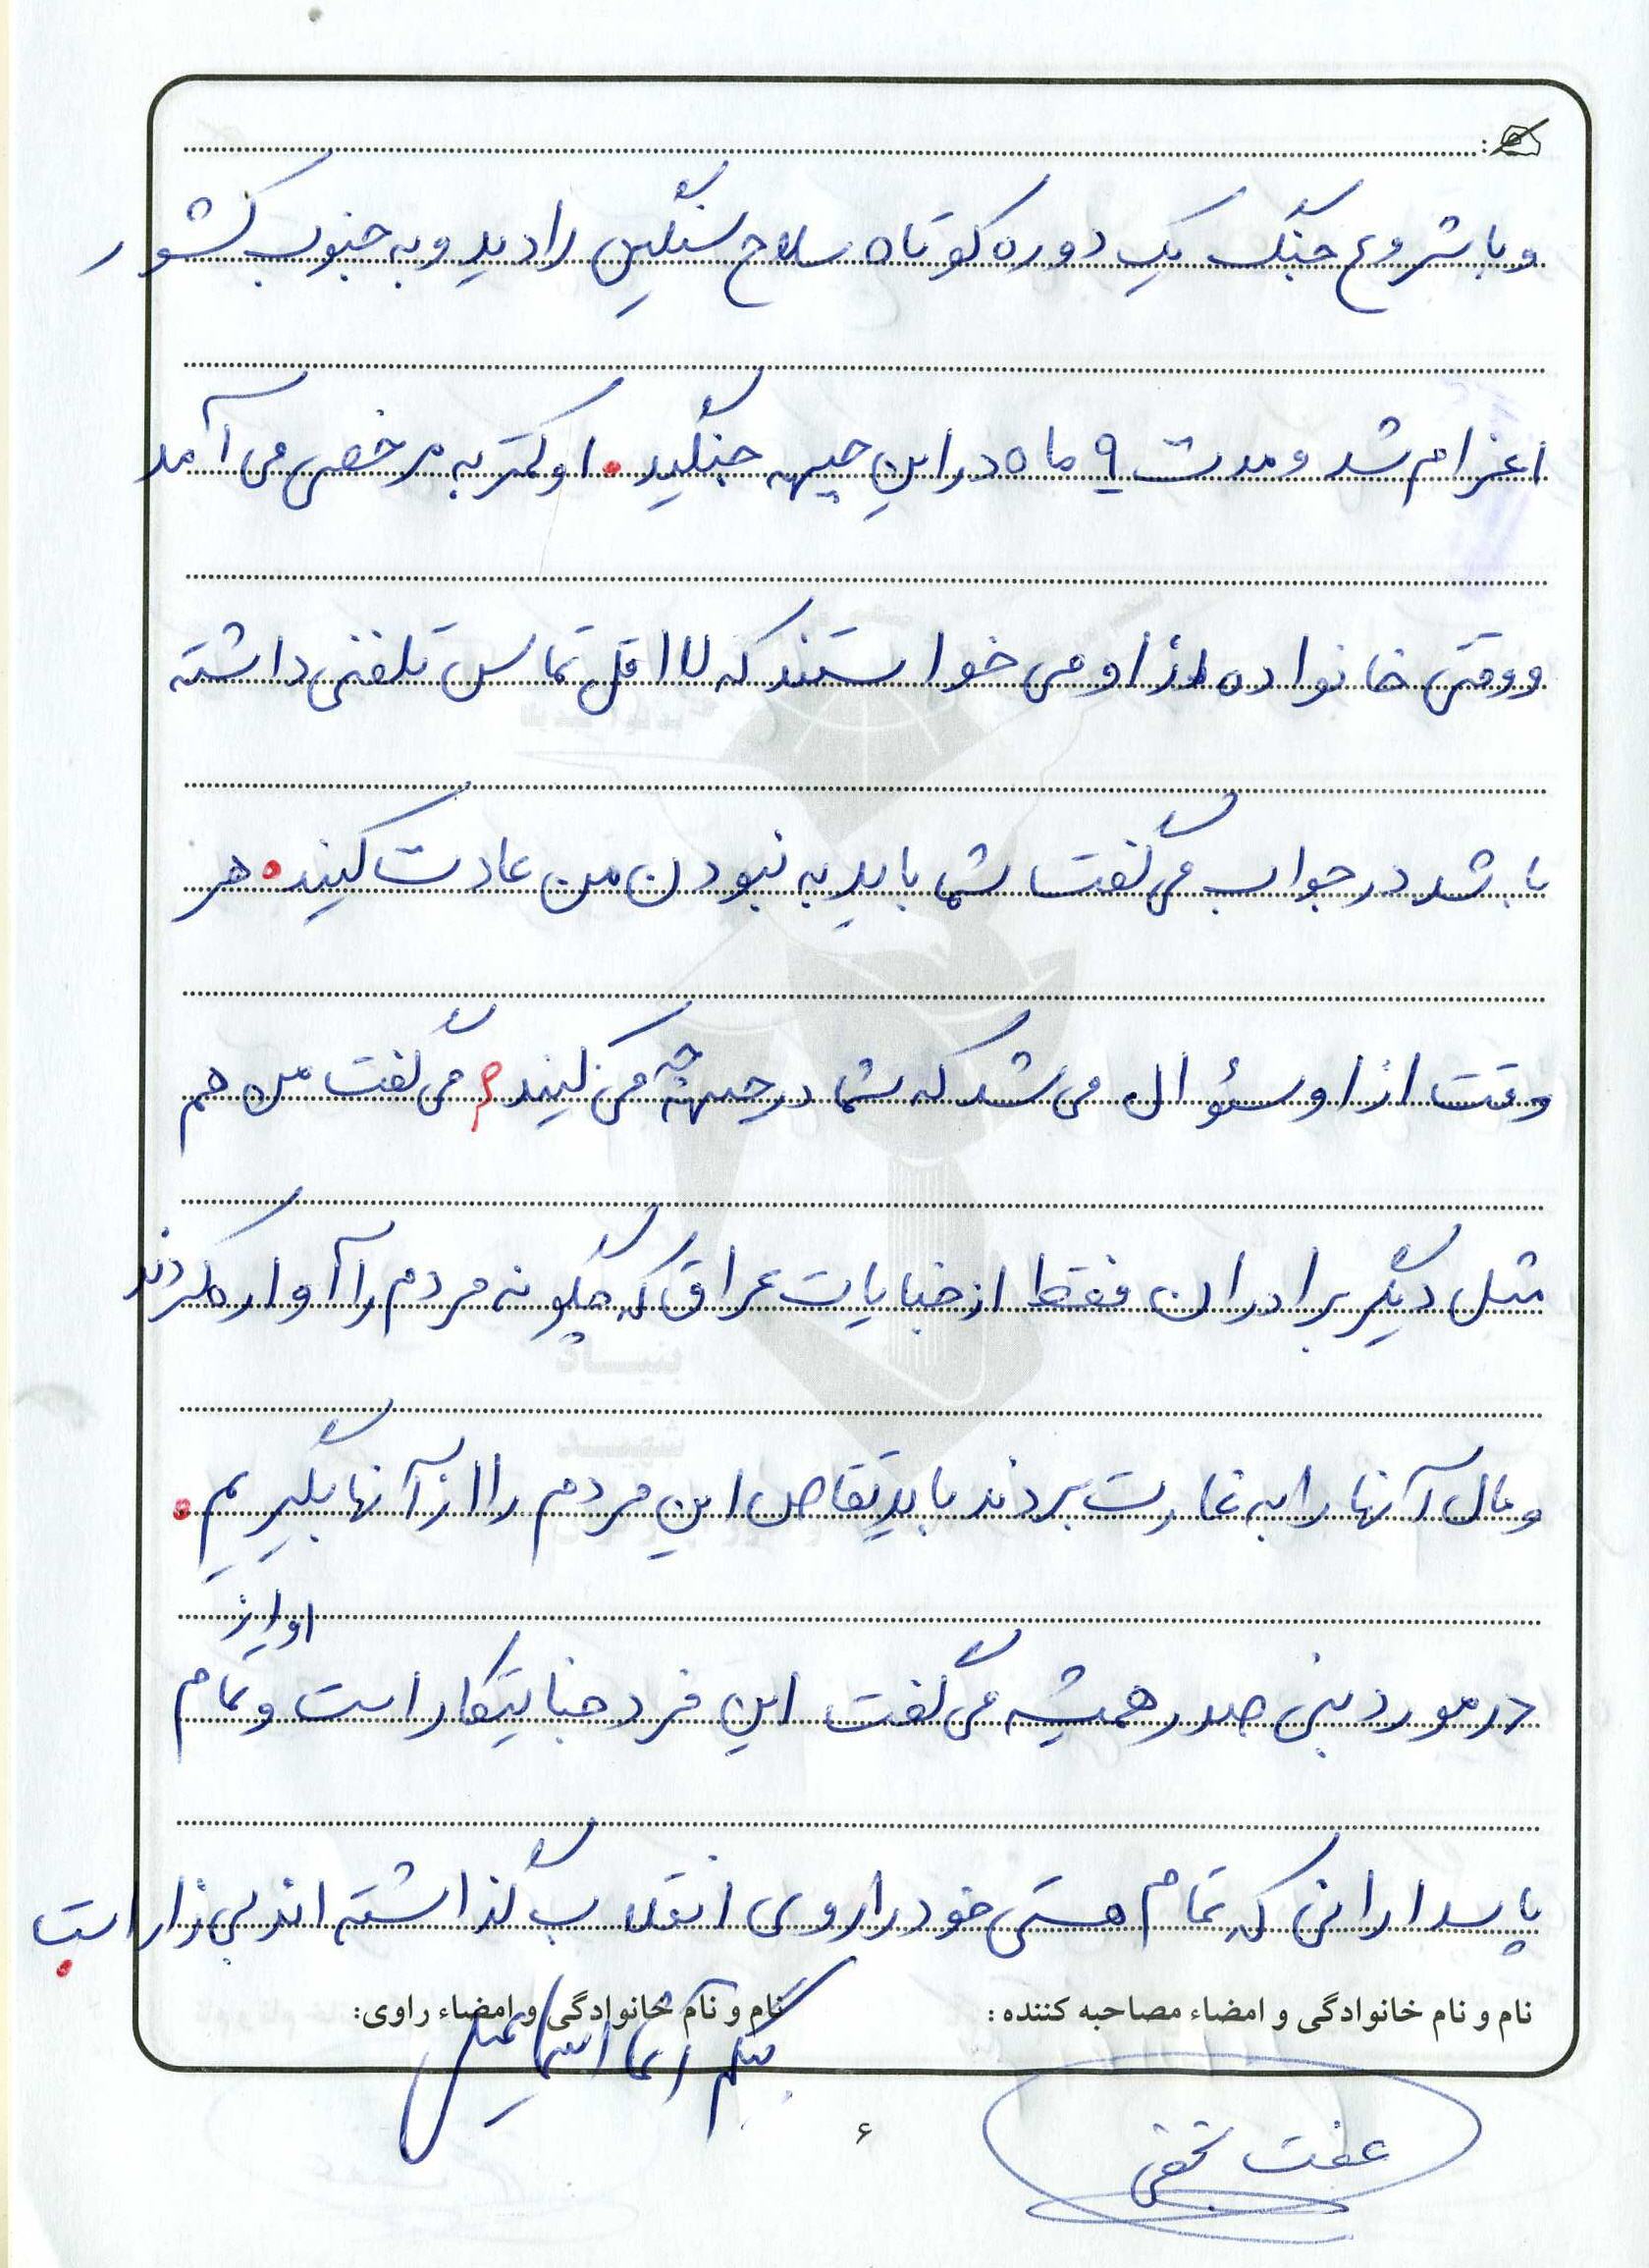 و با شروع جنگ یک دوره کوتاه سلاح سنگین را دید و به جنوب کشور
اعزام شد و مدت ۹ ماه در این جبهه جنگید. او کمتر به مرخصی می آمد
و وقتی خانواده از او می خواستند که لااقل تماس تلفنی داشته
باشد در جواب می گفت شما باید به نبودن من عادت کنید. هر
وقت از او سئوال می شد که شما در جبهه چه می کنید؟ می گفت من هم
مثل دیگر برادران فقط از جنایات عراق که چگونه مردم را آواره کردند
و مال آنها را به غارت بردند باید تقاص این مردم را از آنها بگیریم.
او از
در مورد بنی صدر همیشه می گفت این فرد جنایتکار است و تمام
پاسدارانی که تمام هستی خود را روی انقلاب گذاشته اند بی زار است.
نام و نام خانوادگی و امضاء مصاحبه کننده:
نام و نام خانوادگی و امضاء راوی:
عفت نجفی
۶
بنیاد